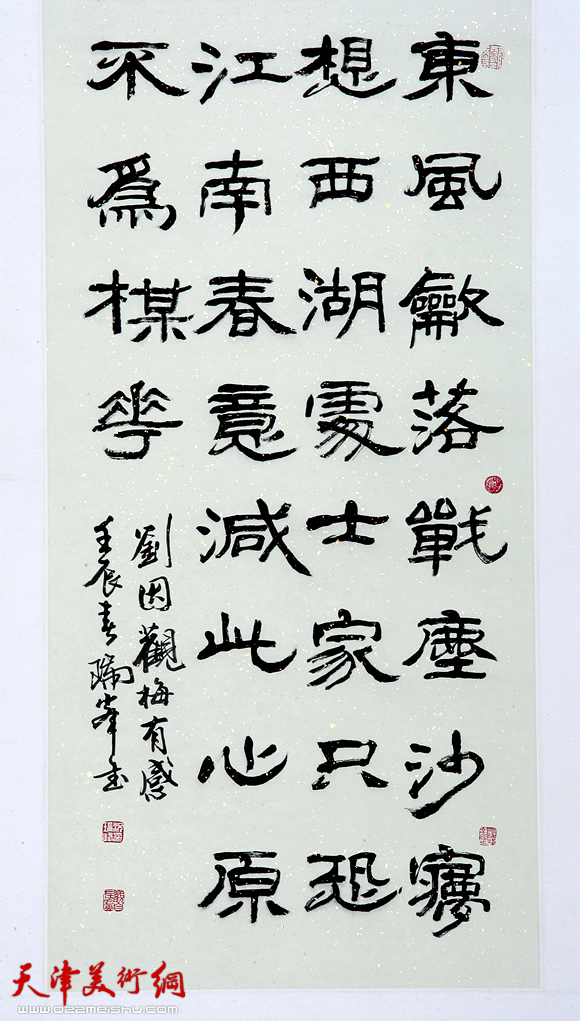 東風龡落戰塵沙㝱
想西湖處士家只恐
江南春意減此心原
不爲楳花
劉因觀梅有感
壬辰春瑞峯书
天津美術網
www.022meishu.com